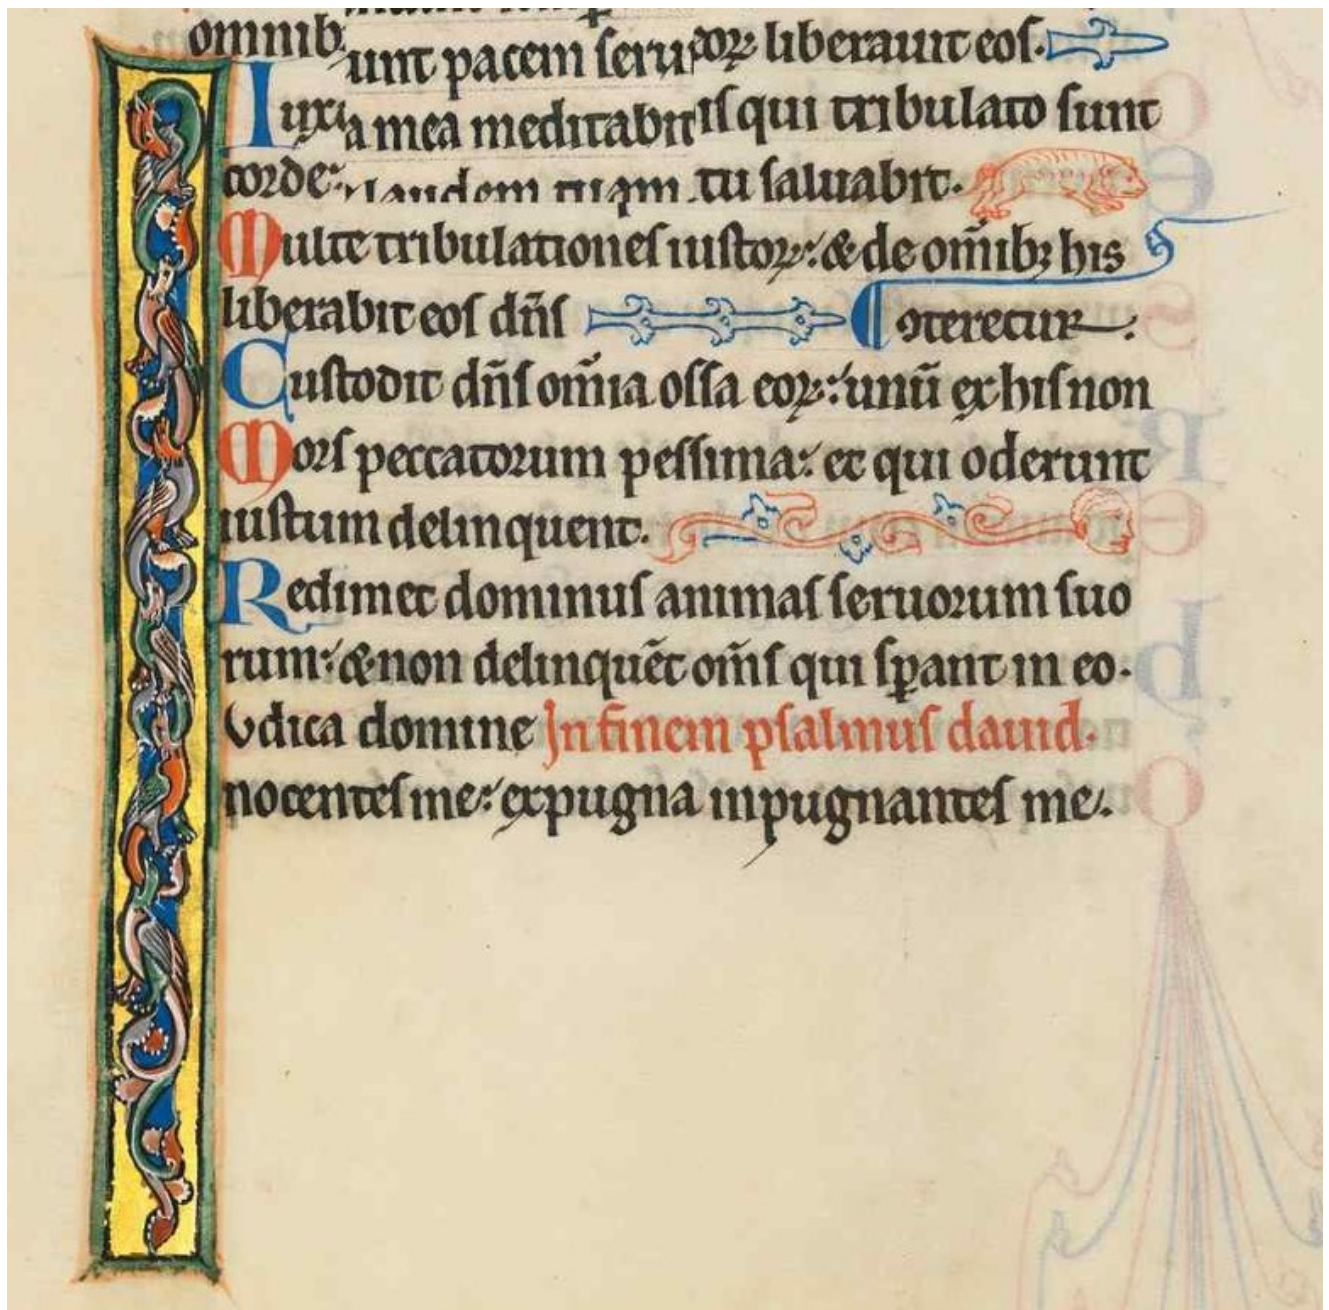 omnib unt pacem seru eoꝝ liberauit eos.
Iuxt a mea meditabit is qui tribulato sunt
corde: laudem tuam tu saluabit.
Multe tribulationes iustoꝝ: & de om̄ibꝫ his
liberabit eos dn̄s ¶ ꝯteretur.
Custodit dn̄s om̄ia ossa eoꝝ: unū ex his non
Mors peccatorum pessima: et qui oderunt
iustum delinquent.
Redimet dominus animas seruorum suo
rum: & non delinquēt om̄s qui sꝑant in eo.
Vdica domine In finem psalmus dauid.
nocentes me: expugna inpugnantes me.